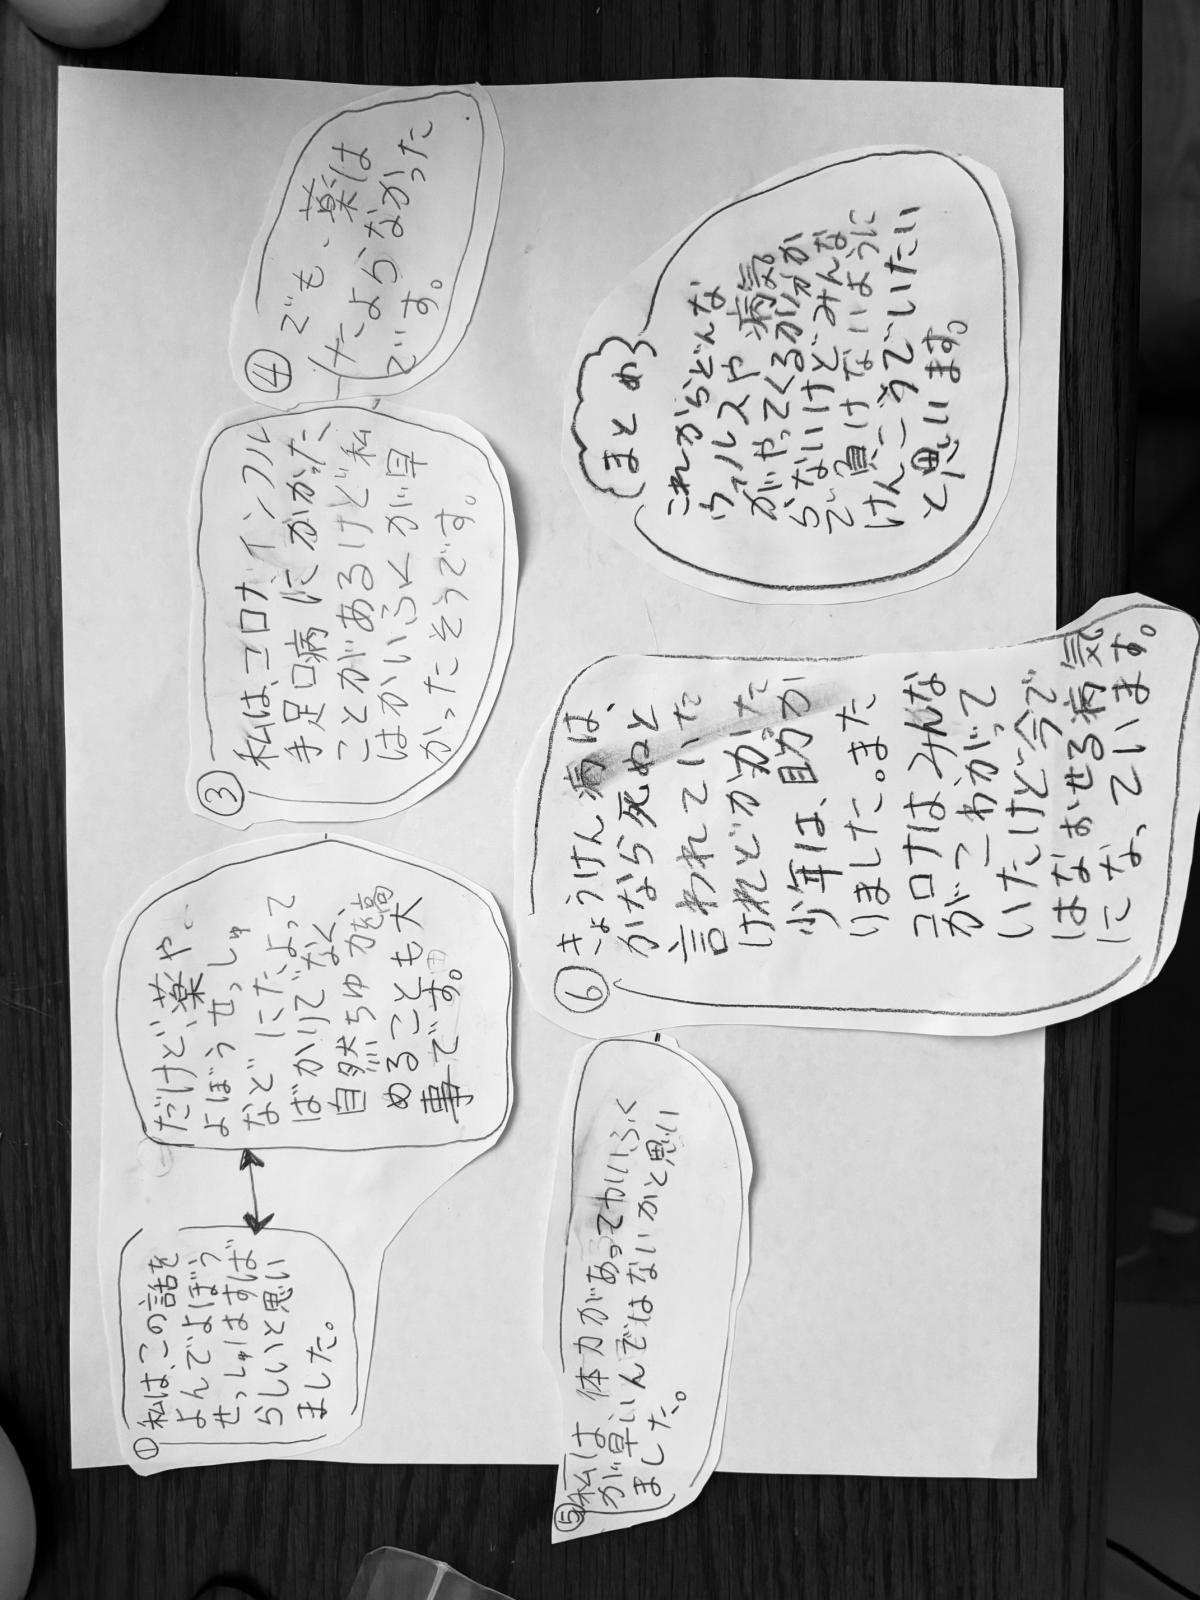 ①
私は、この話を
よんでよぼう
せっしゅはすば
らしいと思い
ました。
だけど、薬や
よぼうせっしゅ
などにたよって
ばかりでなく、
自然ちゆ力を高
めることも大
事です。
③
私は、コロナ、インフル
手足口病にかかった
ことがあるけど私
はかいふくが早
かったそうです。
④
でも、薬は
たよらなかった
です。
⑤
私は体力があってかいふく
が早いんではないかと思い
ました。
⑥
きょうけん病は、
かなら死ぬと
言われていた
けれどかかった
少年は、助か
りました。また
コロナはみんな
がっこわがって
いたけど今で
はなおせる病気
になっています。
まとめ
これからどんな
ウィルスや病気
がやってくるか分か
らないけどみんな
で負けないように
けんこうでいたい
と思います。